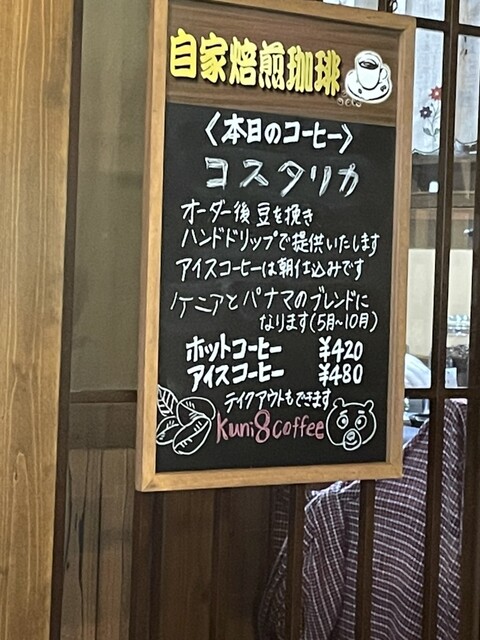 自家焙煎珈琲
〈本日のコーヒー〉
コスタリカ
オーダー後豆を挽き
ハンドドリップで提供いたします
アイスコーヒーは朝仕込みです
ケニアとパナマのブレンドに
なります(5月~10月)
ホットコーヒー ¥420
アイスコーヒー ¥480
テイクアウトもできます
Kuni8coffee